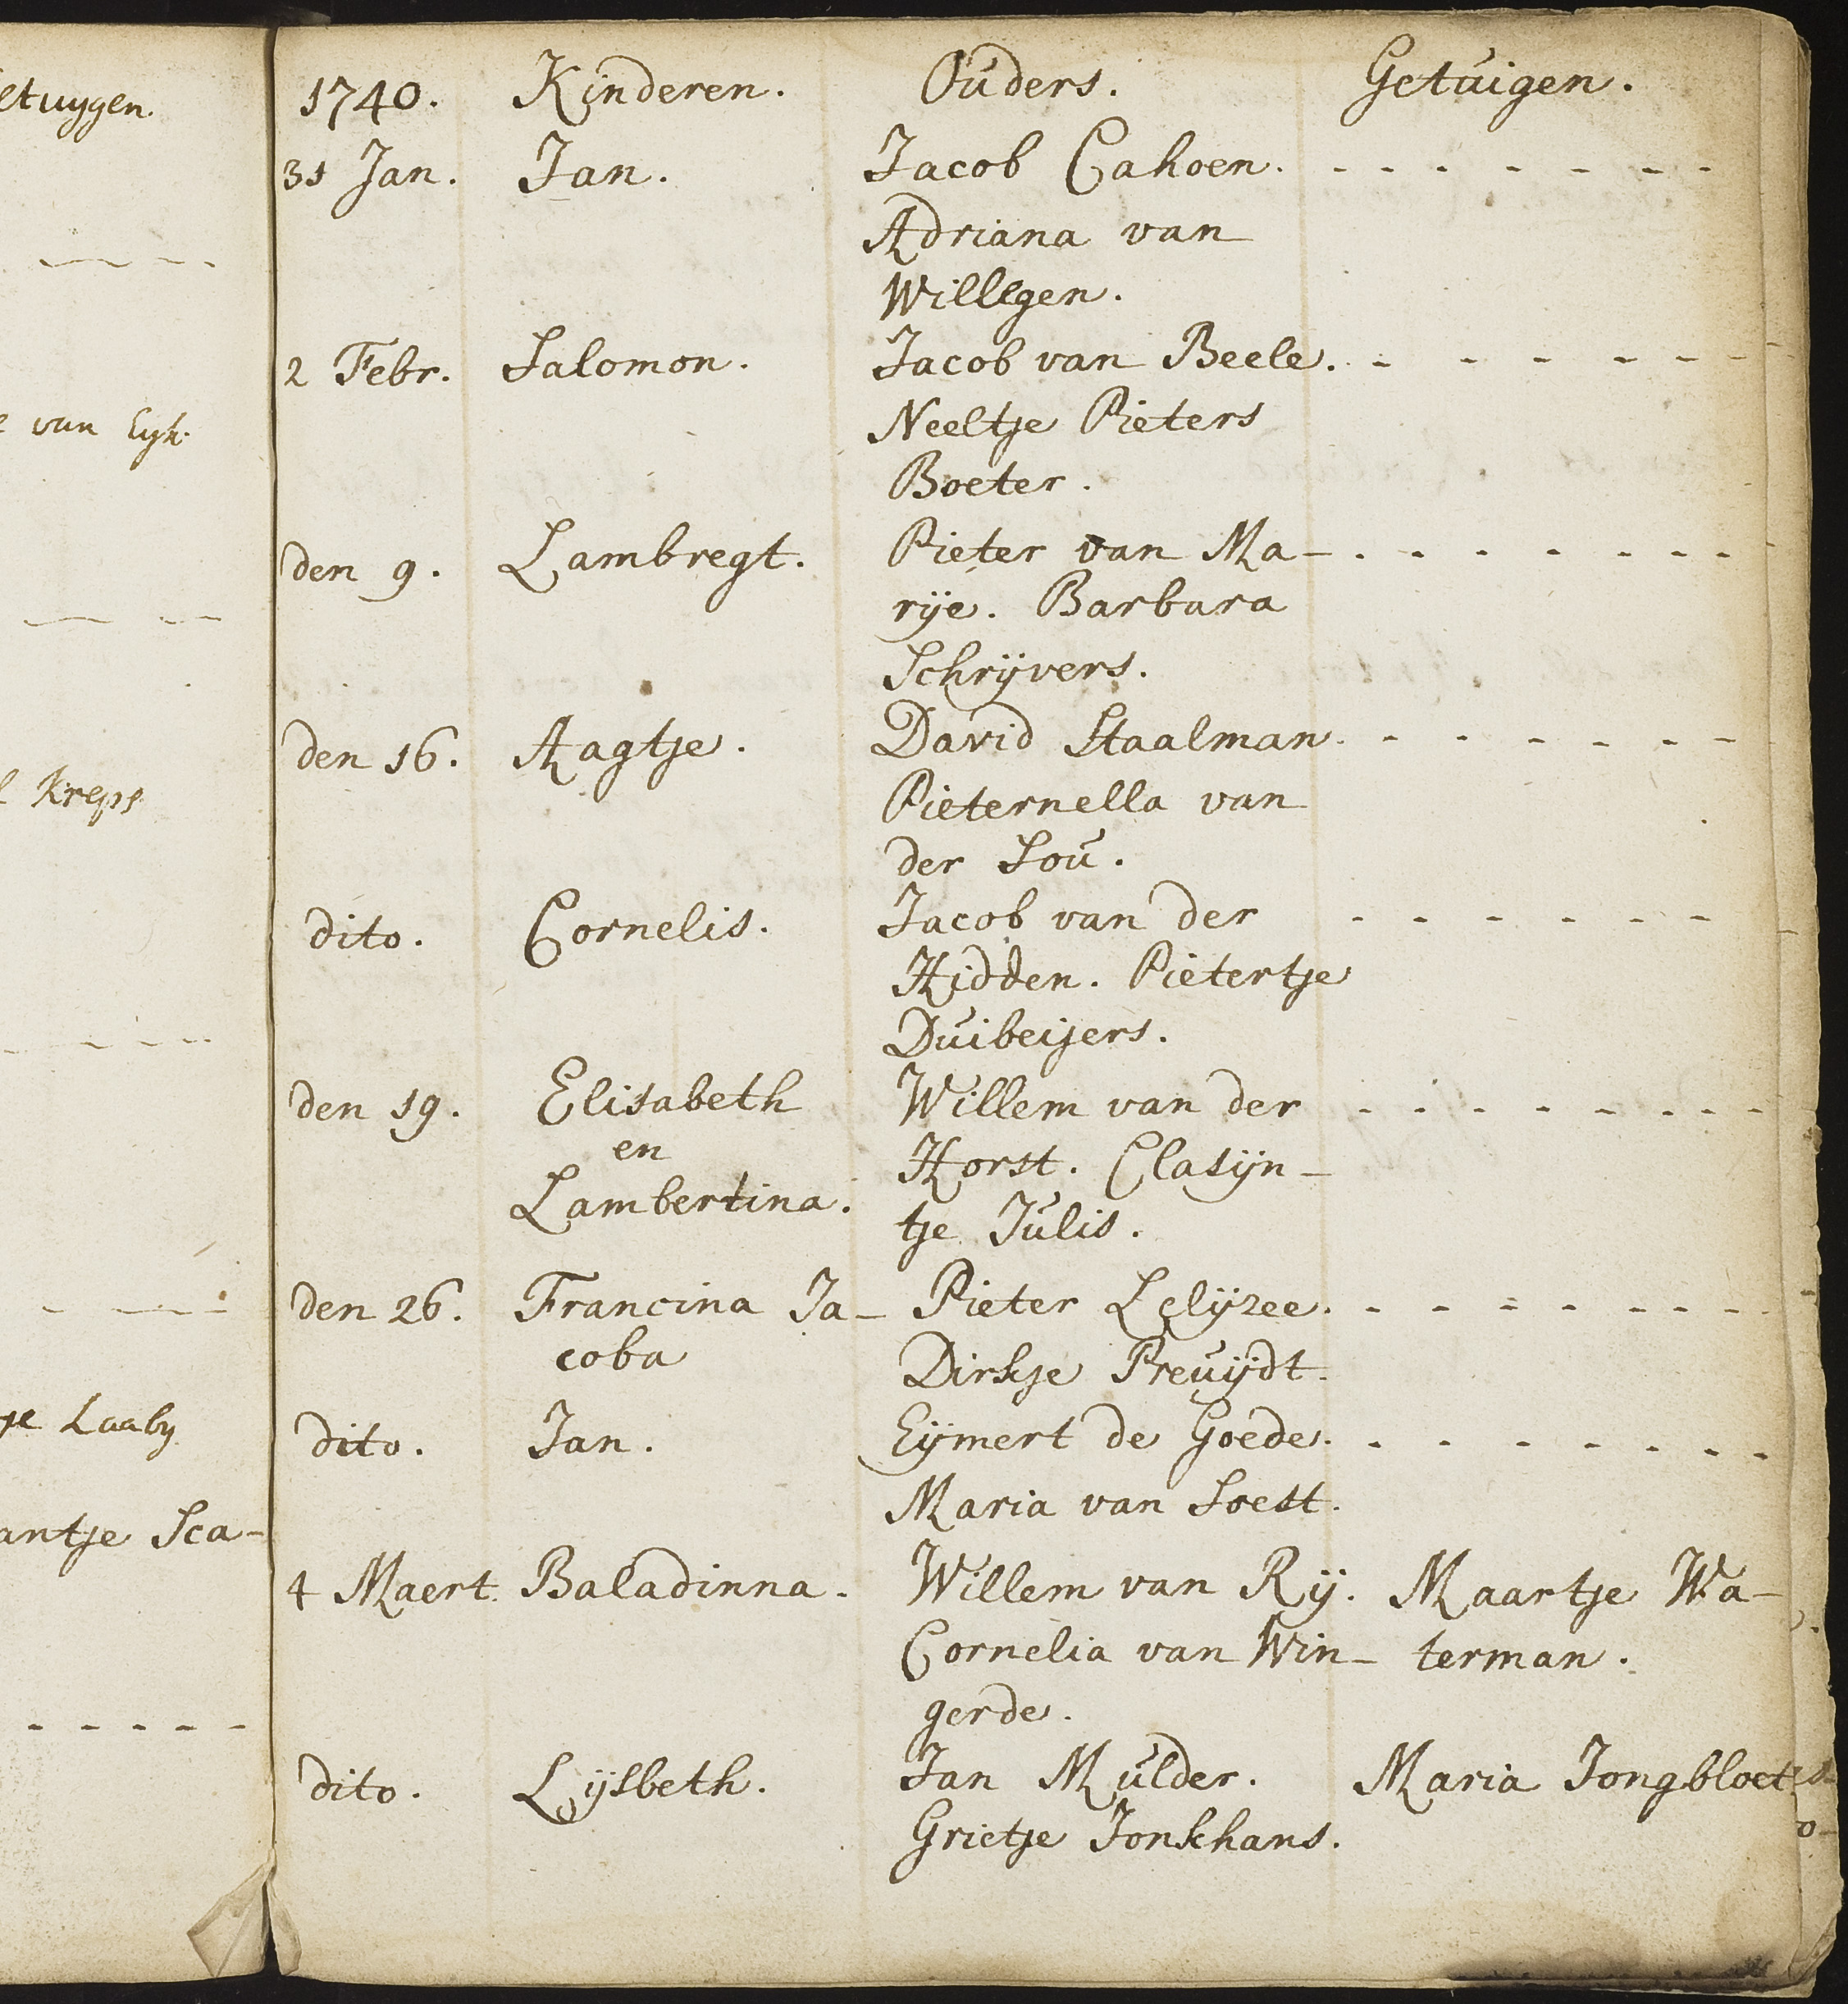 etuygen.
van Eyk.
Kreps
Laaby
antje Sca-
1740. Kinderen. Ouders. Getuigen.
31 Jan. Jan. Jacob Cahoen. - - - - - - -
Adriana van
Willegen.
2 Febr. Salomon. Jacob van Beele. - - - - - -
Neeltje Pieters
Boeter.
den 9. Lambregt. Pieter van Ma- - - - - - -
rije. Barbara
Schrijvers.
den 16. Aagtje. David Staalman. - - - - - -
Pieternella van
der Sou.
dito. Cornelis. Jacob van der - - - - - -
Hidden. Pietertje
Duibeijers.
den 19. Elisabeth Willem van der - - - - - - - -
en Horst. Clasijn-
Lambertina. tje Julis.
den 26. Francina Ja- Pieter Lelyzee. - - - - - - -
coba Dirkje Preuijdt.
dito. Jan. Eijmert de Goede. - - - - - - -
Maria van Soest.
4 Maert. Baladinna. Willem van Rij. Maartje Wa-
Cornelia van Win- terman.
gerde.
dito. Lijsbeth. Jan Mulder. Maria Jongbloet
Grietje Jonkhans.